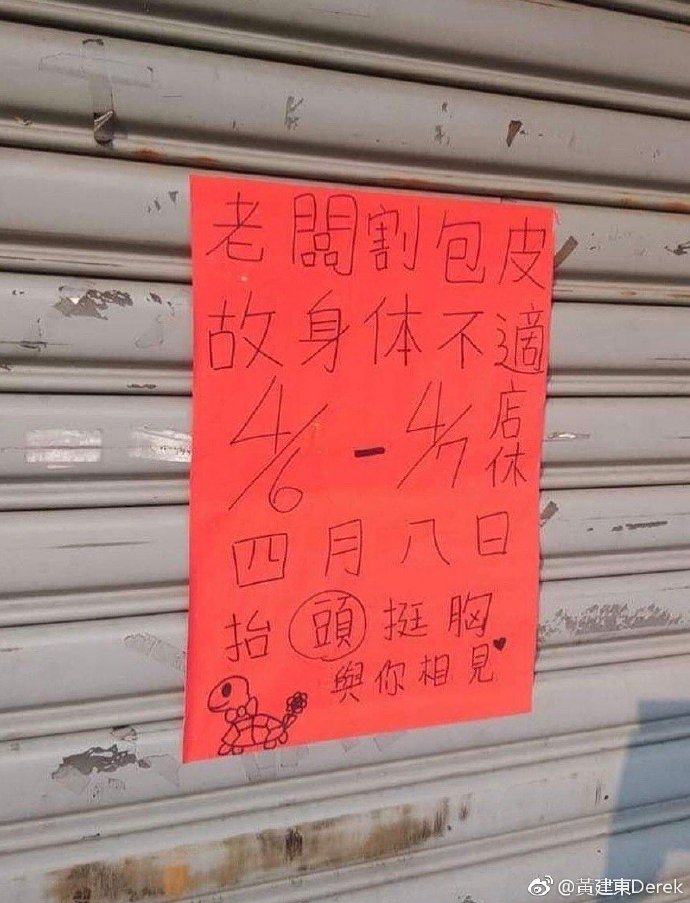 老闆割包皮
故身体不適
4/6-4/7店休
四月八日
抬頭挺胸
與你相見♥
@黃建東Derek